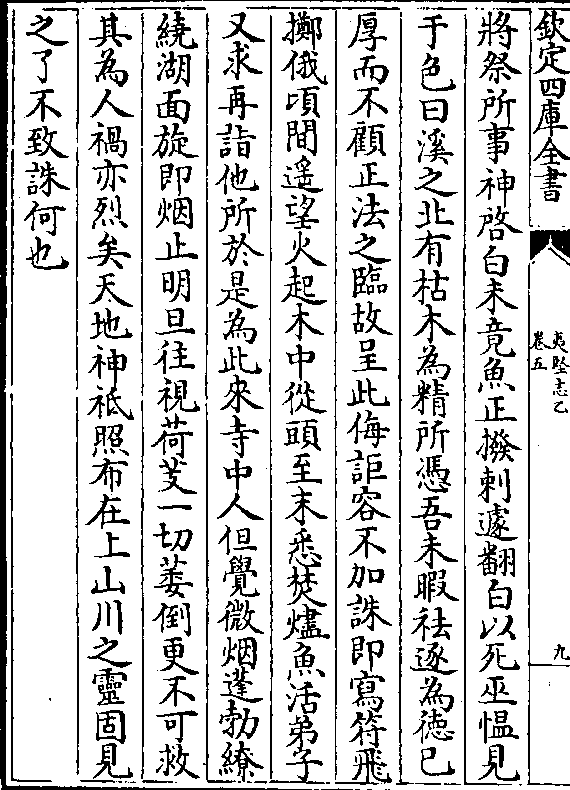 欽定四庫全書
夷堅志乙
卷五
九
將祭所事神啓白未竟魚正撥刺遽翻白以死巫愠見
于色曰溪之北有枯木為精所憑吾未暇祛逐為徳已
厚而不顧正法之臨故呈此侮詎容不加誅即寫符飛
擲俄頃間遥望火起木中從頭至末悉焚燼魚活弟子
又求再詣他所於是為此來寺中人但覺微烟蓬勃繚
繞湖面旋即烟止明旦往視荷芰一切萎倒更不可救
其為人禍亦烈矣天地神祗照布在上山川之靈固見
之了不致誅何也